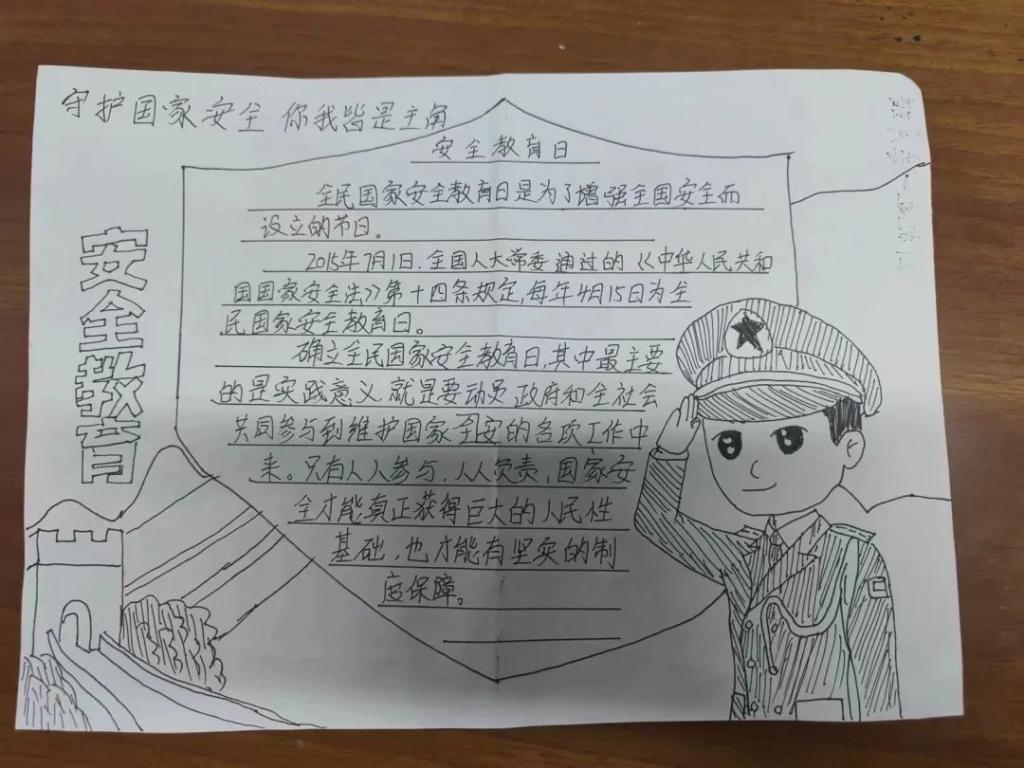 守护国家安全 你我皆是主角
安全教育日
安全教育
全民国家安全教育日是为了增强全国安全而
设立的节日。
2015年7月1日.全国人大常委通过的《中华人民共和
国国家安全法》第十四条规定,每年4月15日为全
民国家安全教育日。
确立全民国家安全教育日,其中最主要
的是实践意义.就是要动员政府和全社会
共同参与到维护国家安的各项工作中
来。只有人人参与,人人负责,国家安
全才能真正获得巨大的人民性
基础,也才能有坚实的制
度保障。